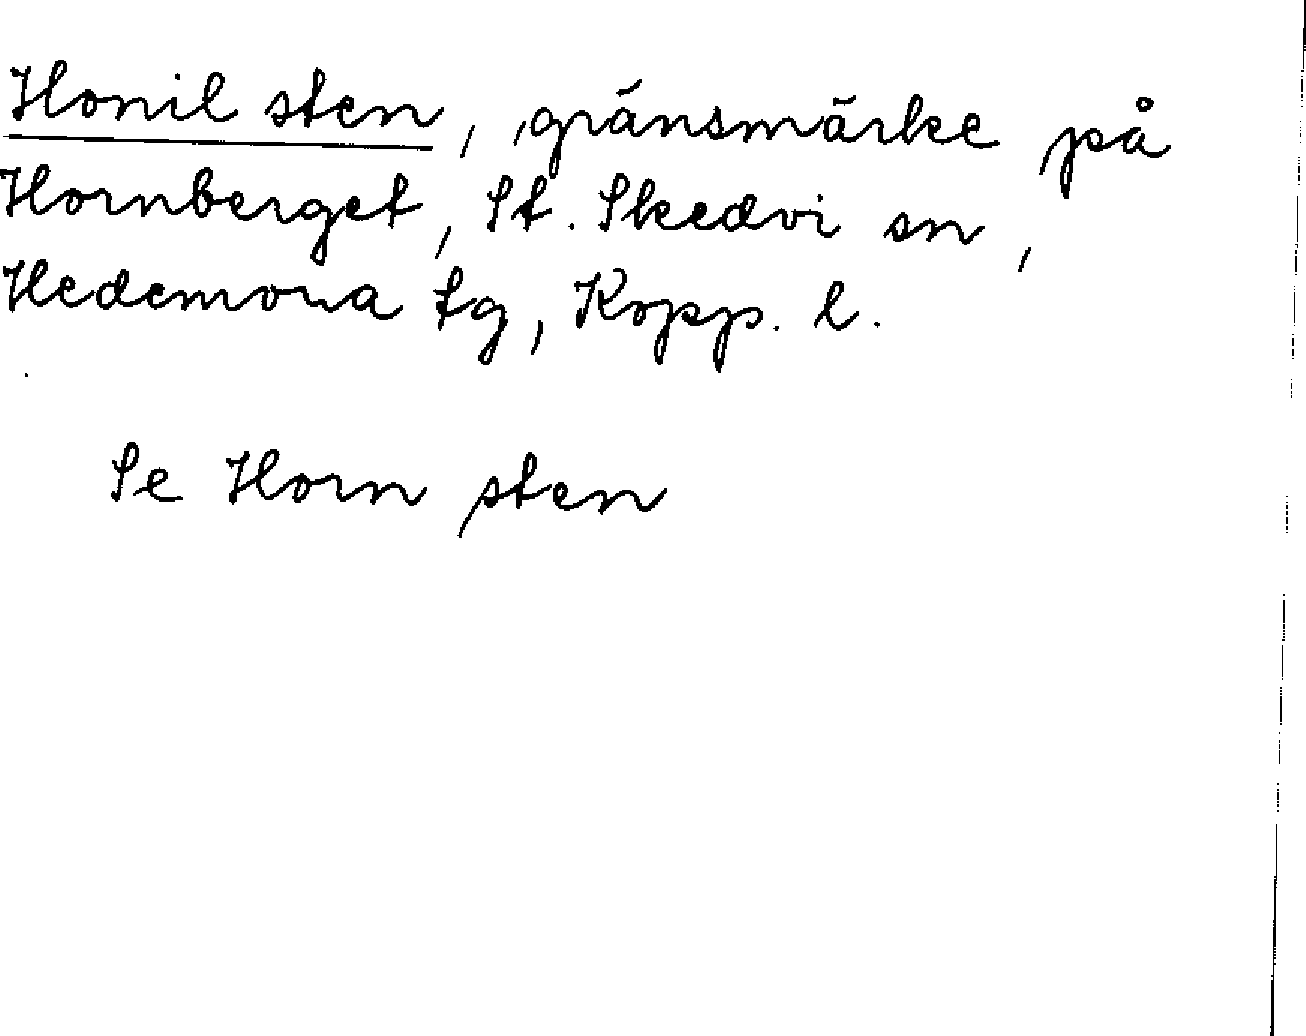 Honil sten, gränsmärke på
Hornberget, St. Skedvi sn,
Hedemora tg, Kopp. l.
Se Horn sten